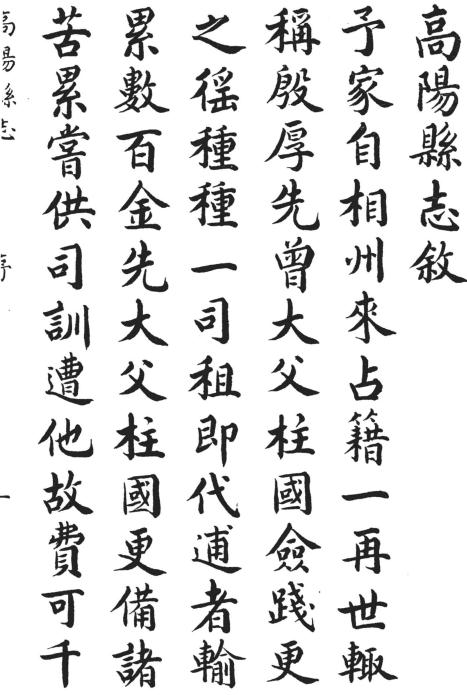 高陽縣志敘
予家自相州來占籍一再世輙
稱殷厚先曾大父柱國僉踐更
之徭種種一司租即代逋者輸
累數百金先大父柱國更備諸
苦累嘗供司訓遭他故費可千
高陽縣志
序
一